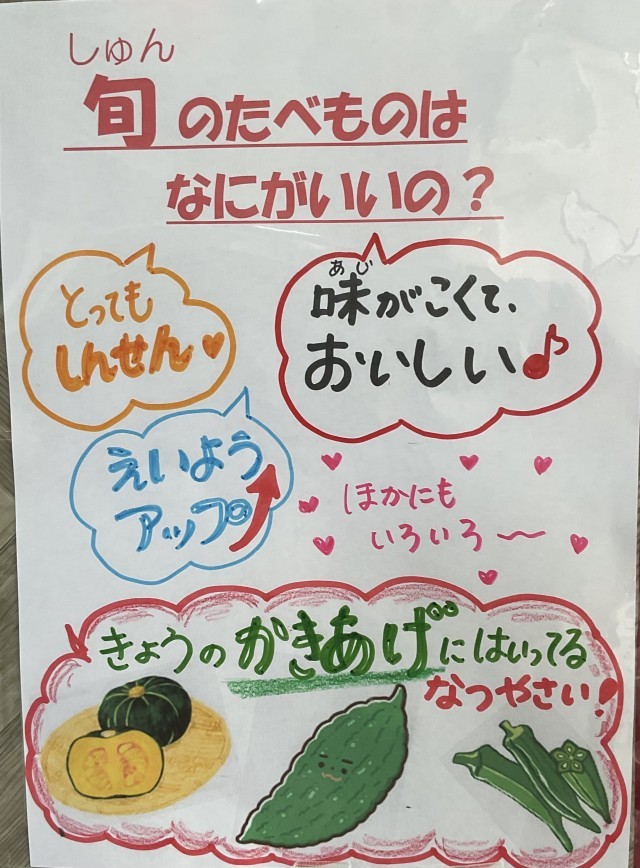 しゅん
旬のたべものは
なにがいいの？
とっても
しんせん
あじ
味がこくて、
おいしい
えいよう
アップ
ほかにも
いろいろ〜
きょうのかきあげにはいってる
なつやさい!